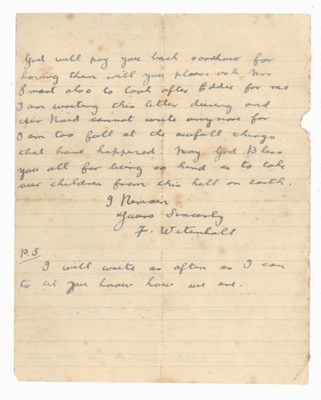 God will pay you back somehow for
having them will you please ask Mrs
Smart also to look after Eddie for me
I am writing this letter during and
Air Raid cannot write anymore for
I am too full at the awfull things
that have happened May God Bless
you all for being so kind as to take
our children from this hell on earth.
I Remain
Yours Sincerly
F. Wetenhall
P.S
I will write as often as I can
to let you know how we are.